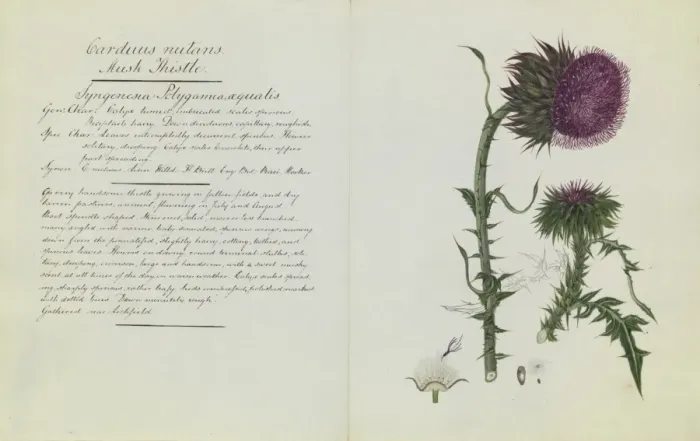 Carduus nutans.
Musk Thistle.
Syngenesia Polygamia æqualis
Gen. Char. Calyx tumid, imbricated scales spinous
Receptacle hairy. Down deciduous, capillary, roughish.
Spec. Char. Leaves interruptedly decurrent spinous. Flowers
solitary, drooping. Calyx scales lanceolate, their upper
part spreading.
Synon. C. nutans. Linn Willd. Fl Britt Eng Bot Hooker
A very handsome thistle growing in fallow fields, and dry
barren pastures, annual, flowering in July and August.
Root spindle shaped. Stem erect, solid, more or less branched
many angled with narrow leafy sinuated, spinous wings, running
down from the pinnatifid, slightly hairy, and
spinous leaves. Flowers on downy round terminal stalks, soli
tary, drooping, crimson, large and handsome, with a sweet musky
scent at all times of the day in warm weather. Calyx scales spread
ing sharply spinous, rather leafy. Seeds polished, marked
with dotted lines. Down minutely rough.
Gathered near